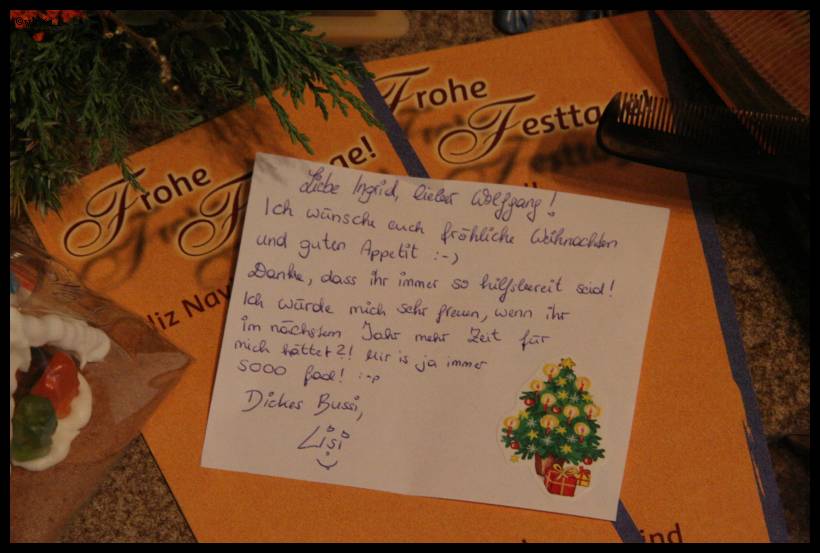 Frohe
Festta
Frohe
ge!
liz Nav
Liebe Ingrid, lieber Wolfgang!
Ich wünsche euch fröhliche Weihnachten
und guten Appetit :-)
Danke, dass ihr immer so hilfsbereit seid!
Ich würde mich sehr freuen, wenn ihr
im nächstem Jahr mehr Zeit für
mich hättet?! Mir is ja immer
sooo fad! :-p
Dickes Bussi,
Lisi
ind